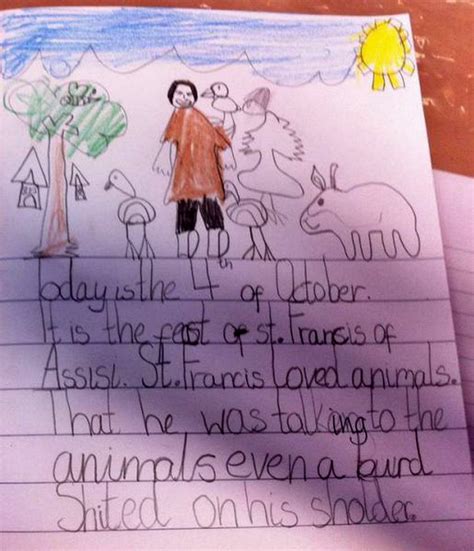 Today is the 4th of October.
It is the feast of st. Fransis of
Assisi. St. Francis Loved animals.
That he was talking to the
animals even a burd
Shited on his sholder.